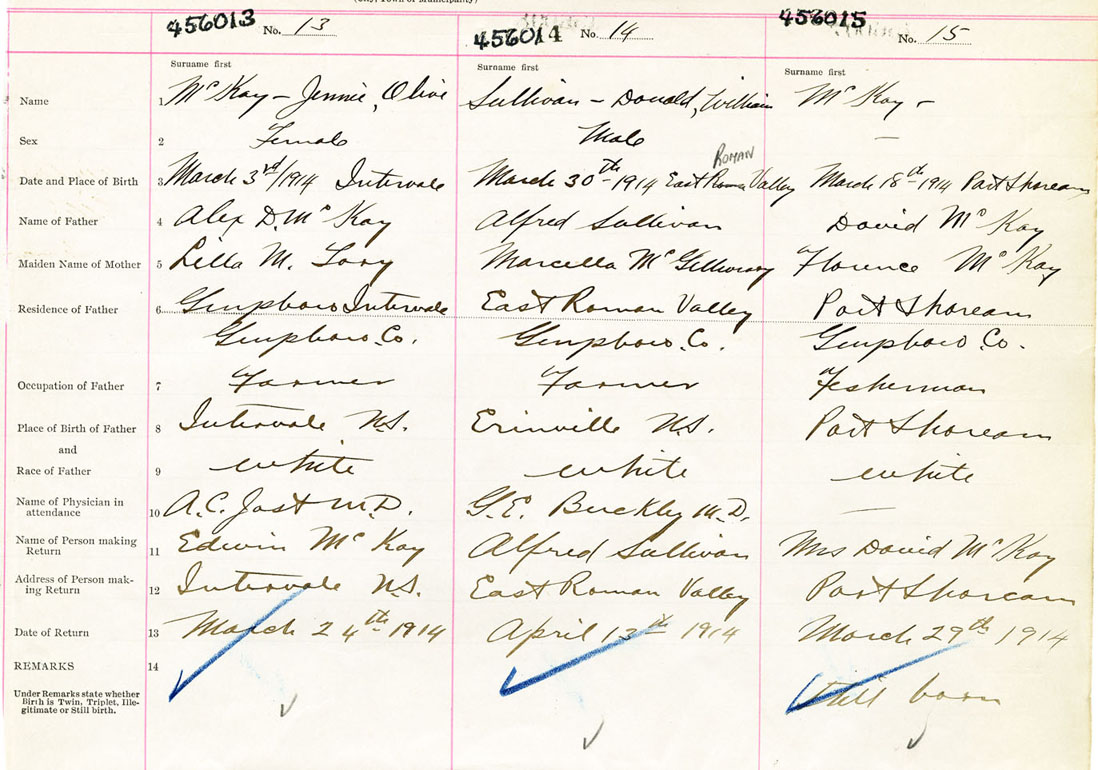 (City, Town or Municipality)
456013 No. 13 456014 No. 14 456015 No. 15
Surname first Surname first Surname first
Name 1 McKay - Jennie, Olive Sullivan - Donald, William McKay -
Sex 2 Female Male —
ROMAN
Date and Place of Birth 3 March 3rd/1914 Intervale March 30th-1914 East Roman Valley March 18th-1914 Port Shoream
Name of Father 4 Alex D. McKay Alfred Sullivan David McKay
Maiden Name of Mother 5 Lilla M. Marcella Florence McKay
Residence of Father 6 Intervale East Roman Valley Port Shoream
Co. Co. Co.
Occupation of Father 7 Farmer Farmer Fesherman
Place of Birth of Father 8 Intervale N.S. Erinville N.S. Port Shoream
and
Race of Father 9 white white white
Name of Physician in
attendance 10 A.C. Jost M.D. G.E. Buckley M.D. —
Name of Person making
Return 11 Edwin McKay Alfred Sullivan Mrs David McKay
Address of Person mak-
ing Return 12 Intervale N.S. East Roman Valley Port Shoream
Date of Return 13 March 24th 1914 April 13th 1914 March 29th 1914
REMARKS 14
Under Remarks state whether
Birth is Twin, Triplet, Ille-
gitimate or Still birth. Still born